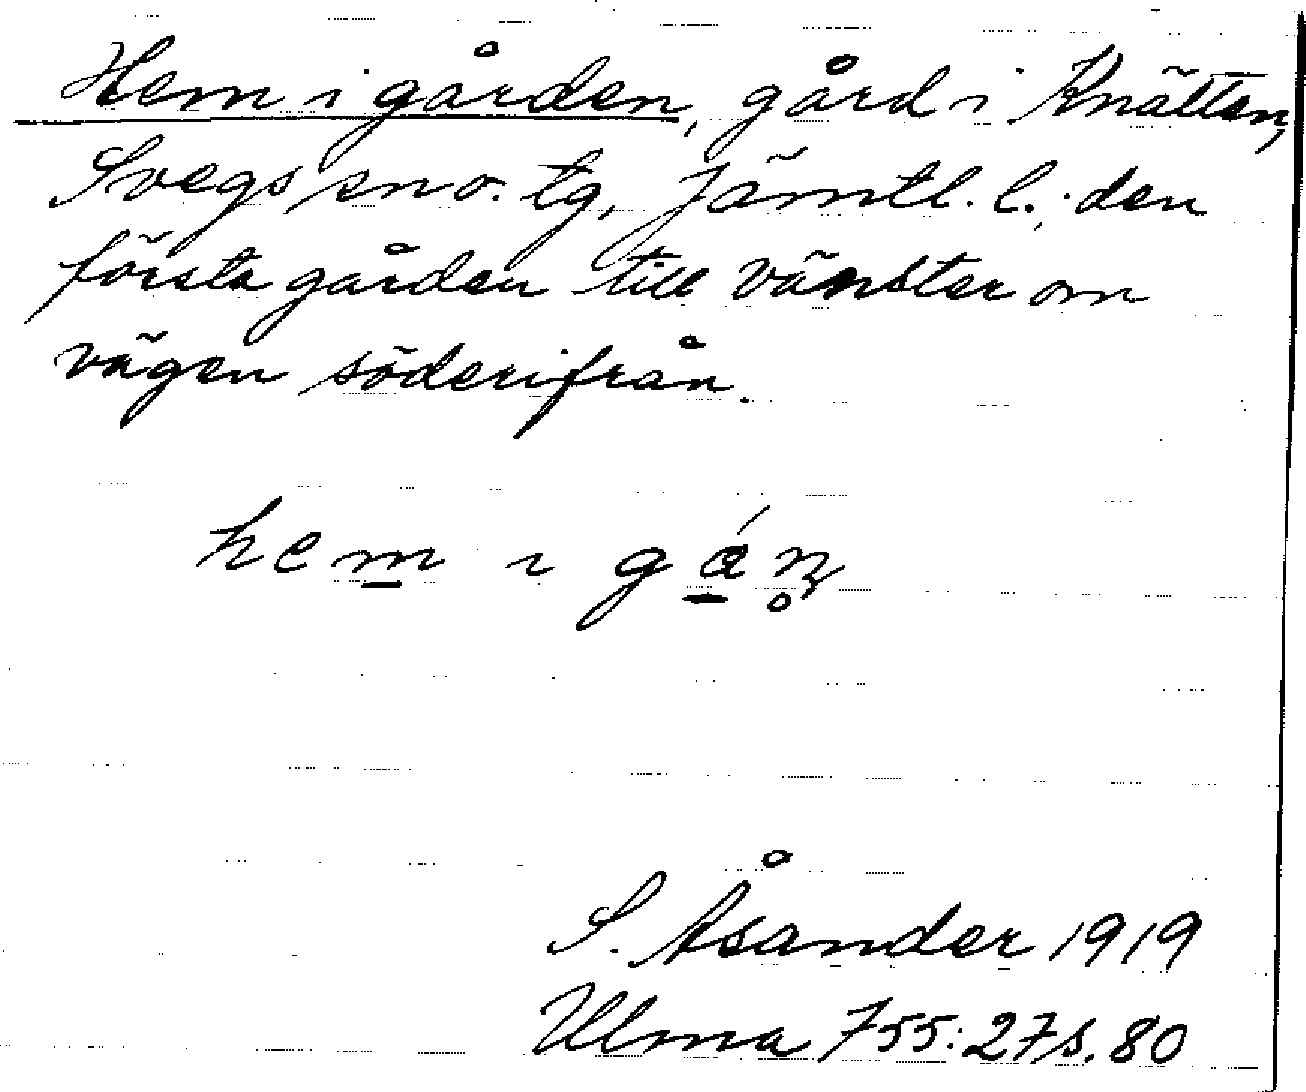 Hem i gården, gård i Knätten,
Svegs sn o. tg, Jämtl. l.; den
första gården till vänster om
vägen söderifrån.
hem ı gán̥
S. Åsander 1919
Ulma 755:27 s. 80